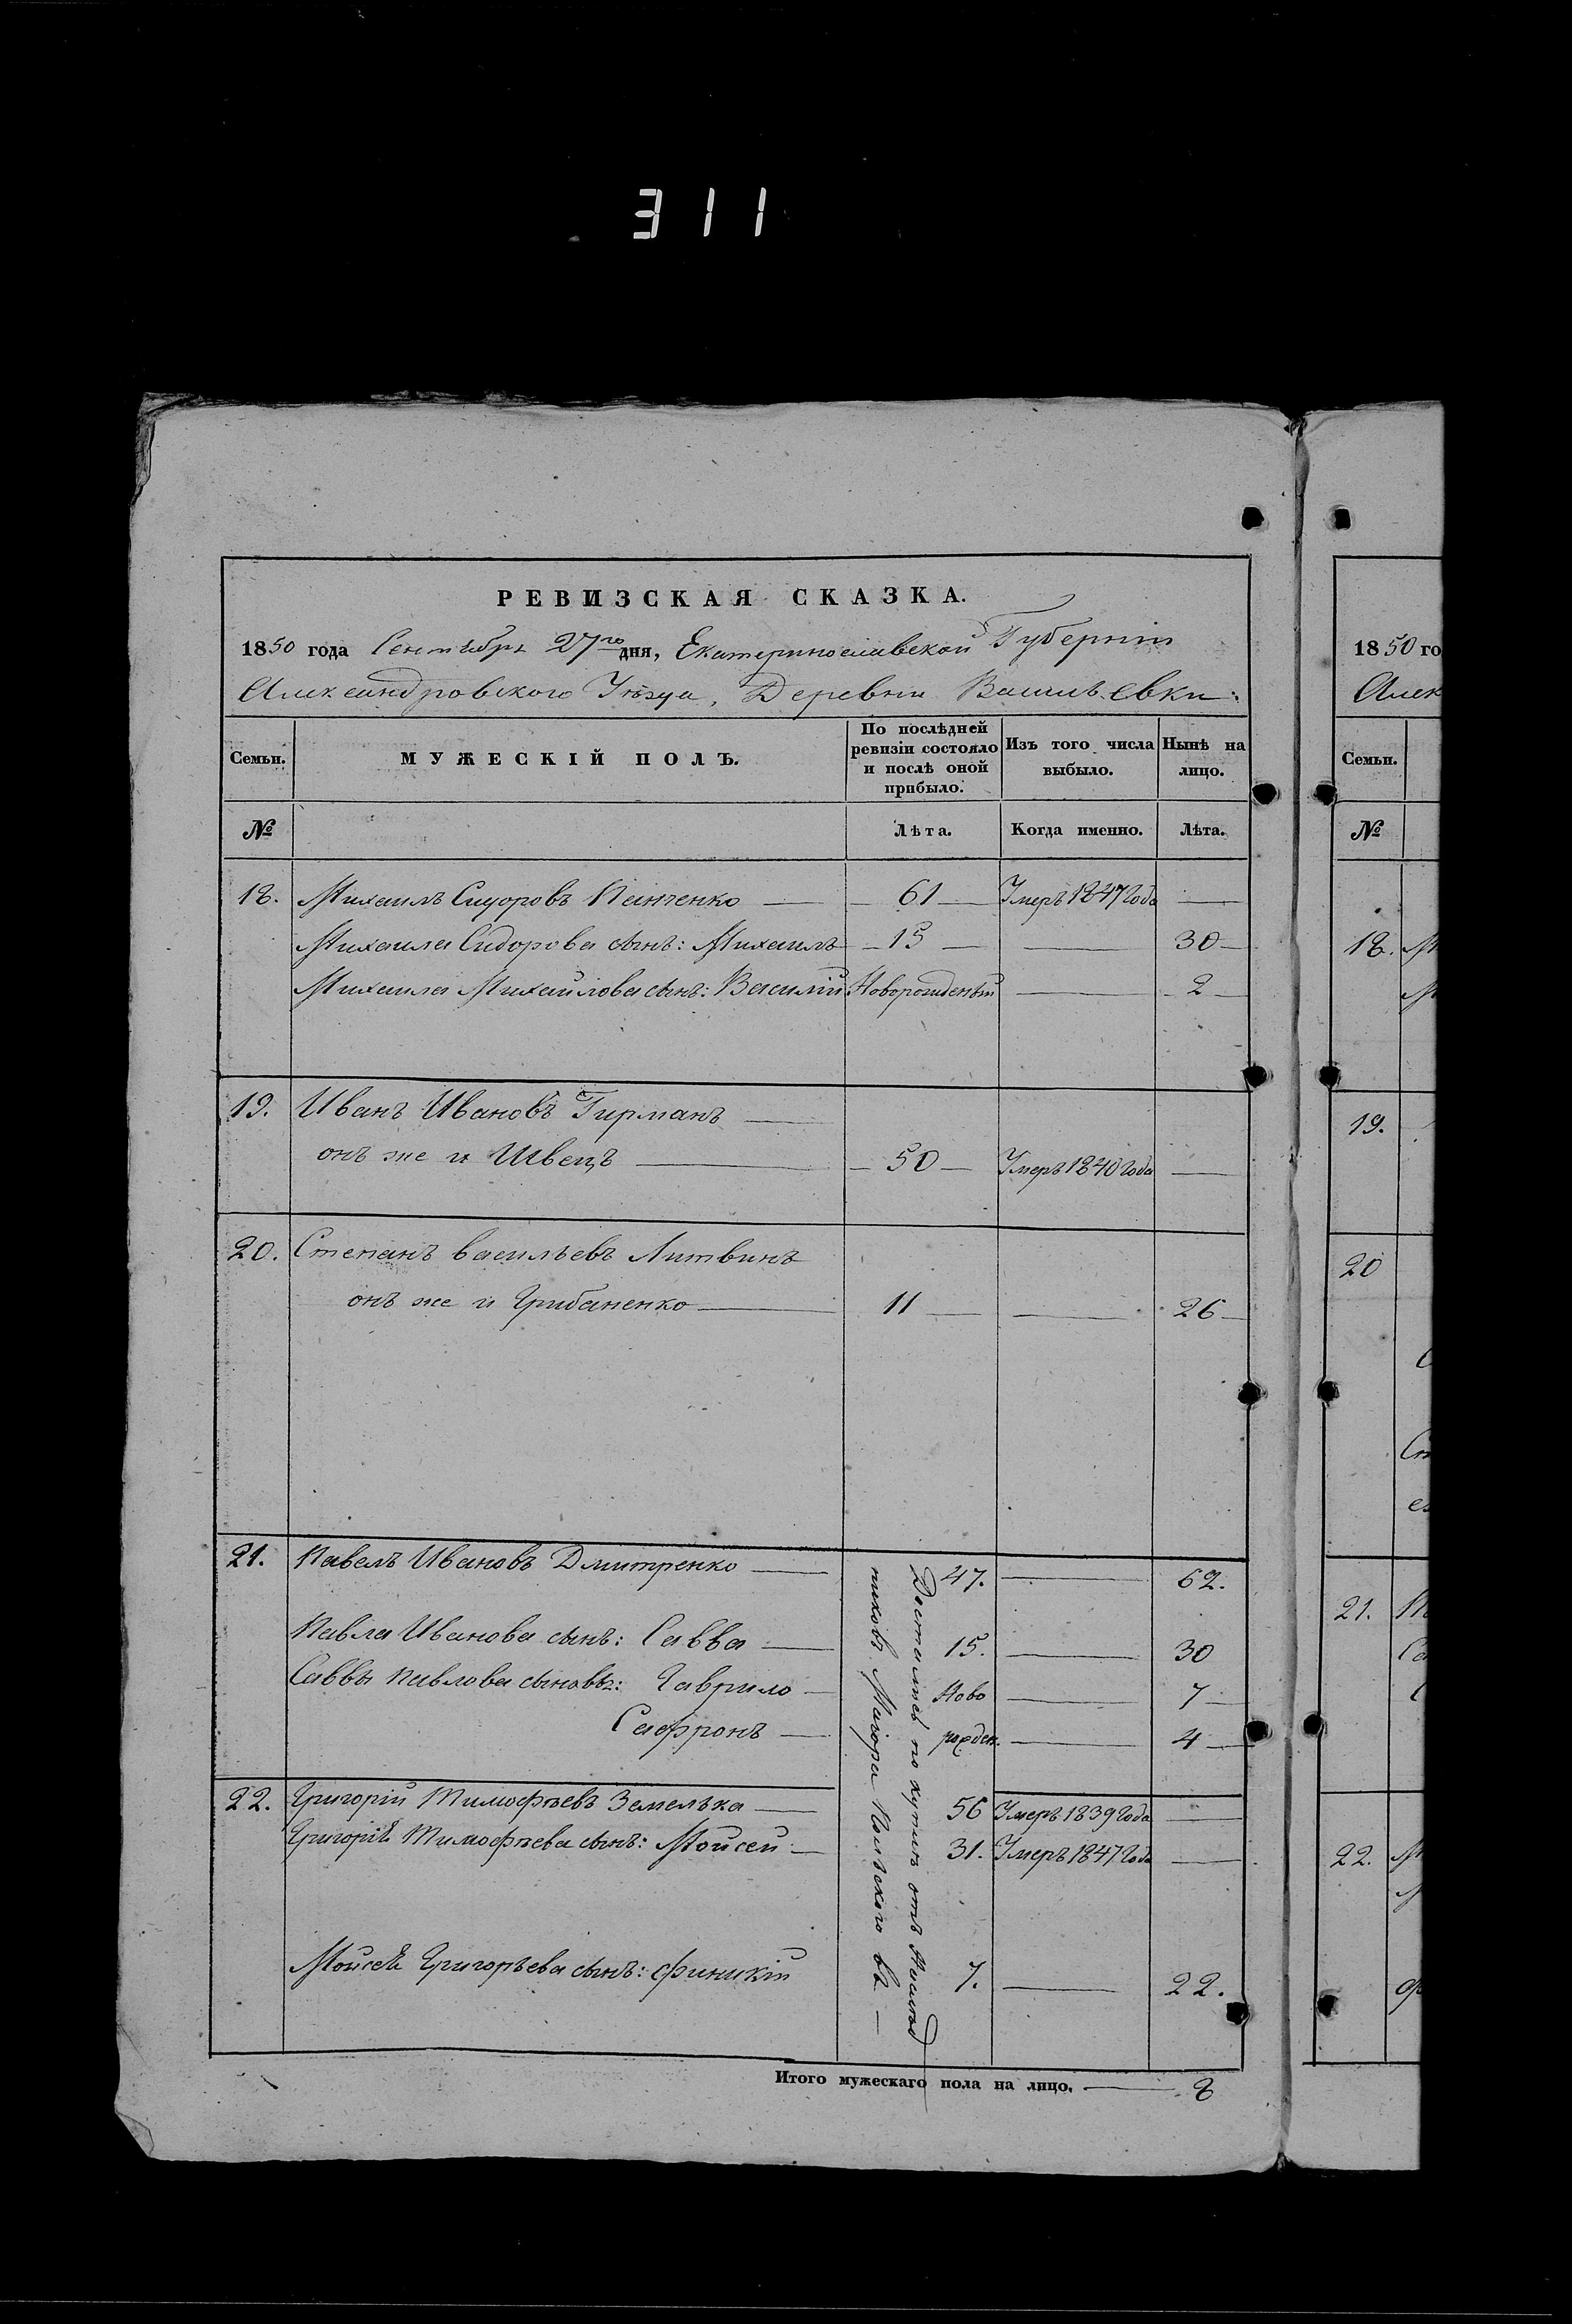 311
РЕВИЗСКАЯ СКАЗКА.
1850 года Сентября 27го дня, Екатеринославской Губернии
Александровского Уѣзда, Деревни Васильевки:
Семьи.
МУЖЕСКІЙ ПОЛЪ.
По послѣдней ревизіи состояло и послѣ оной прибыло.
Изъ того числа выбыло.
Нынѣ на лицо.
№
Лѣта.
Когда именно.
Лѣта.
18. Михаилъ Сидоровъ Панченко — 61 — Умеръ 1847 Года —
Михаила Сидорова сынъ: Михаилъ — 15 — — 30 —
Михаила Михайлова сынъ: Василій Новорожденный — 2 —
19. Иванъ Ивановъ Гирманъ —
онъ же и Швецъ — 50 — Умеръ 1840 Года —
20. Степанъ Васильевъ Литвинъ
онъ же и Грибаненко — 11 — — 26 —
21. Павелъ Ивановъ Дмитренко — 47. — 62.
Павла Иванова сынъ: Савва — 15. — 30
Саввы Павлова сыновья: Гаврило — Ново — 7 —
Сафронъ — рожден. — 4 —
22. Григорій Тимофѣевъ Земелька — 56 Умеръ 1839 Года —
Григорія Тимофѣева сынъ: Мойсей — 31. Умеръ 1847 Года —
Мойсея Григорьева сынъ: Финикій 7. — 22.
Достались по купли отъ Наслѣд
никовъ Маіора
Итого мужескаго пола на лицо. — 8
1850 го
Алек
Семьи.
№
18. М
М
19.
20
Ст
21. П
Са
22. М